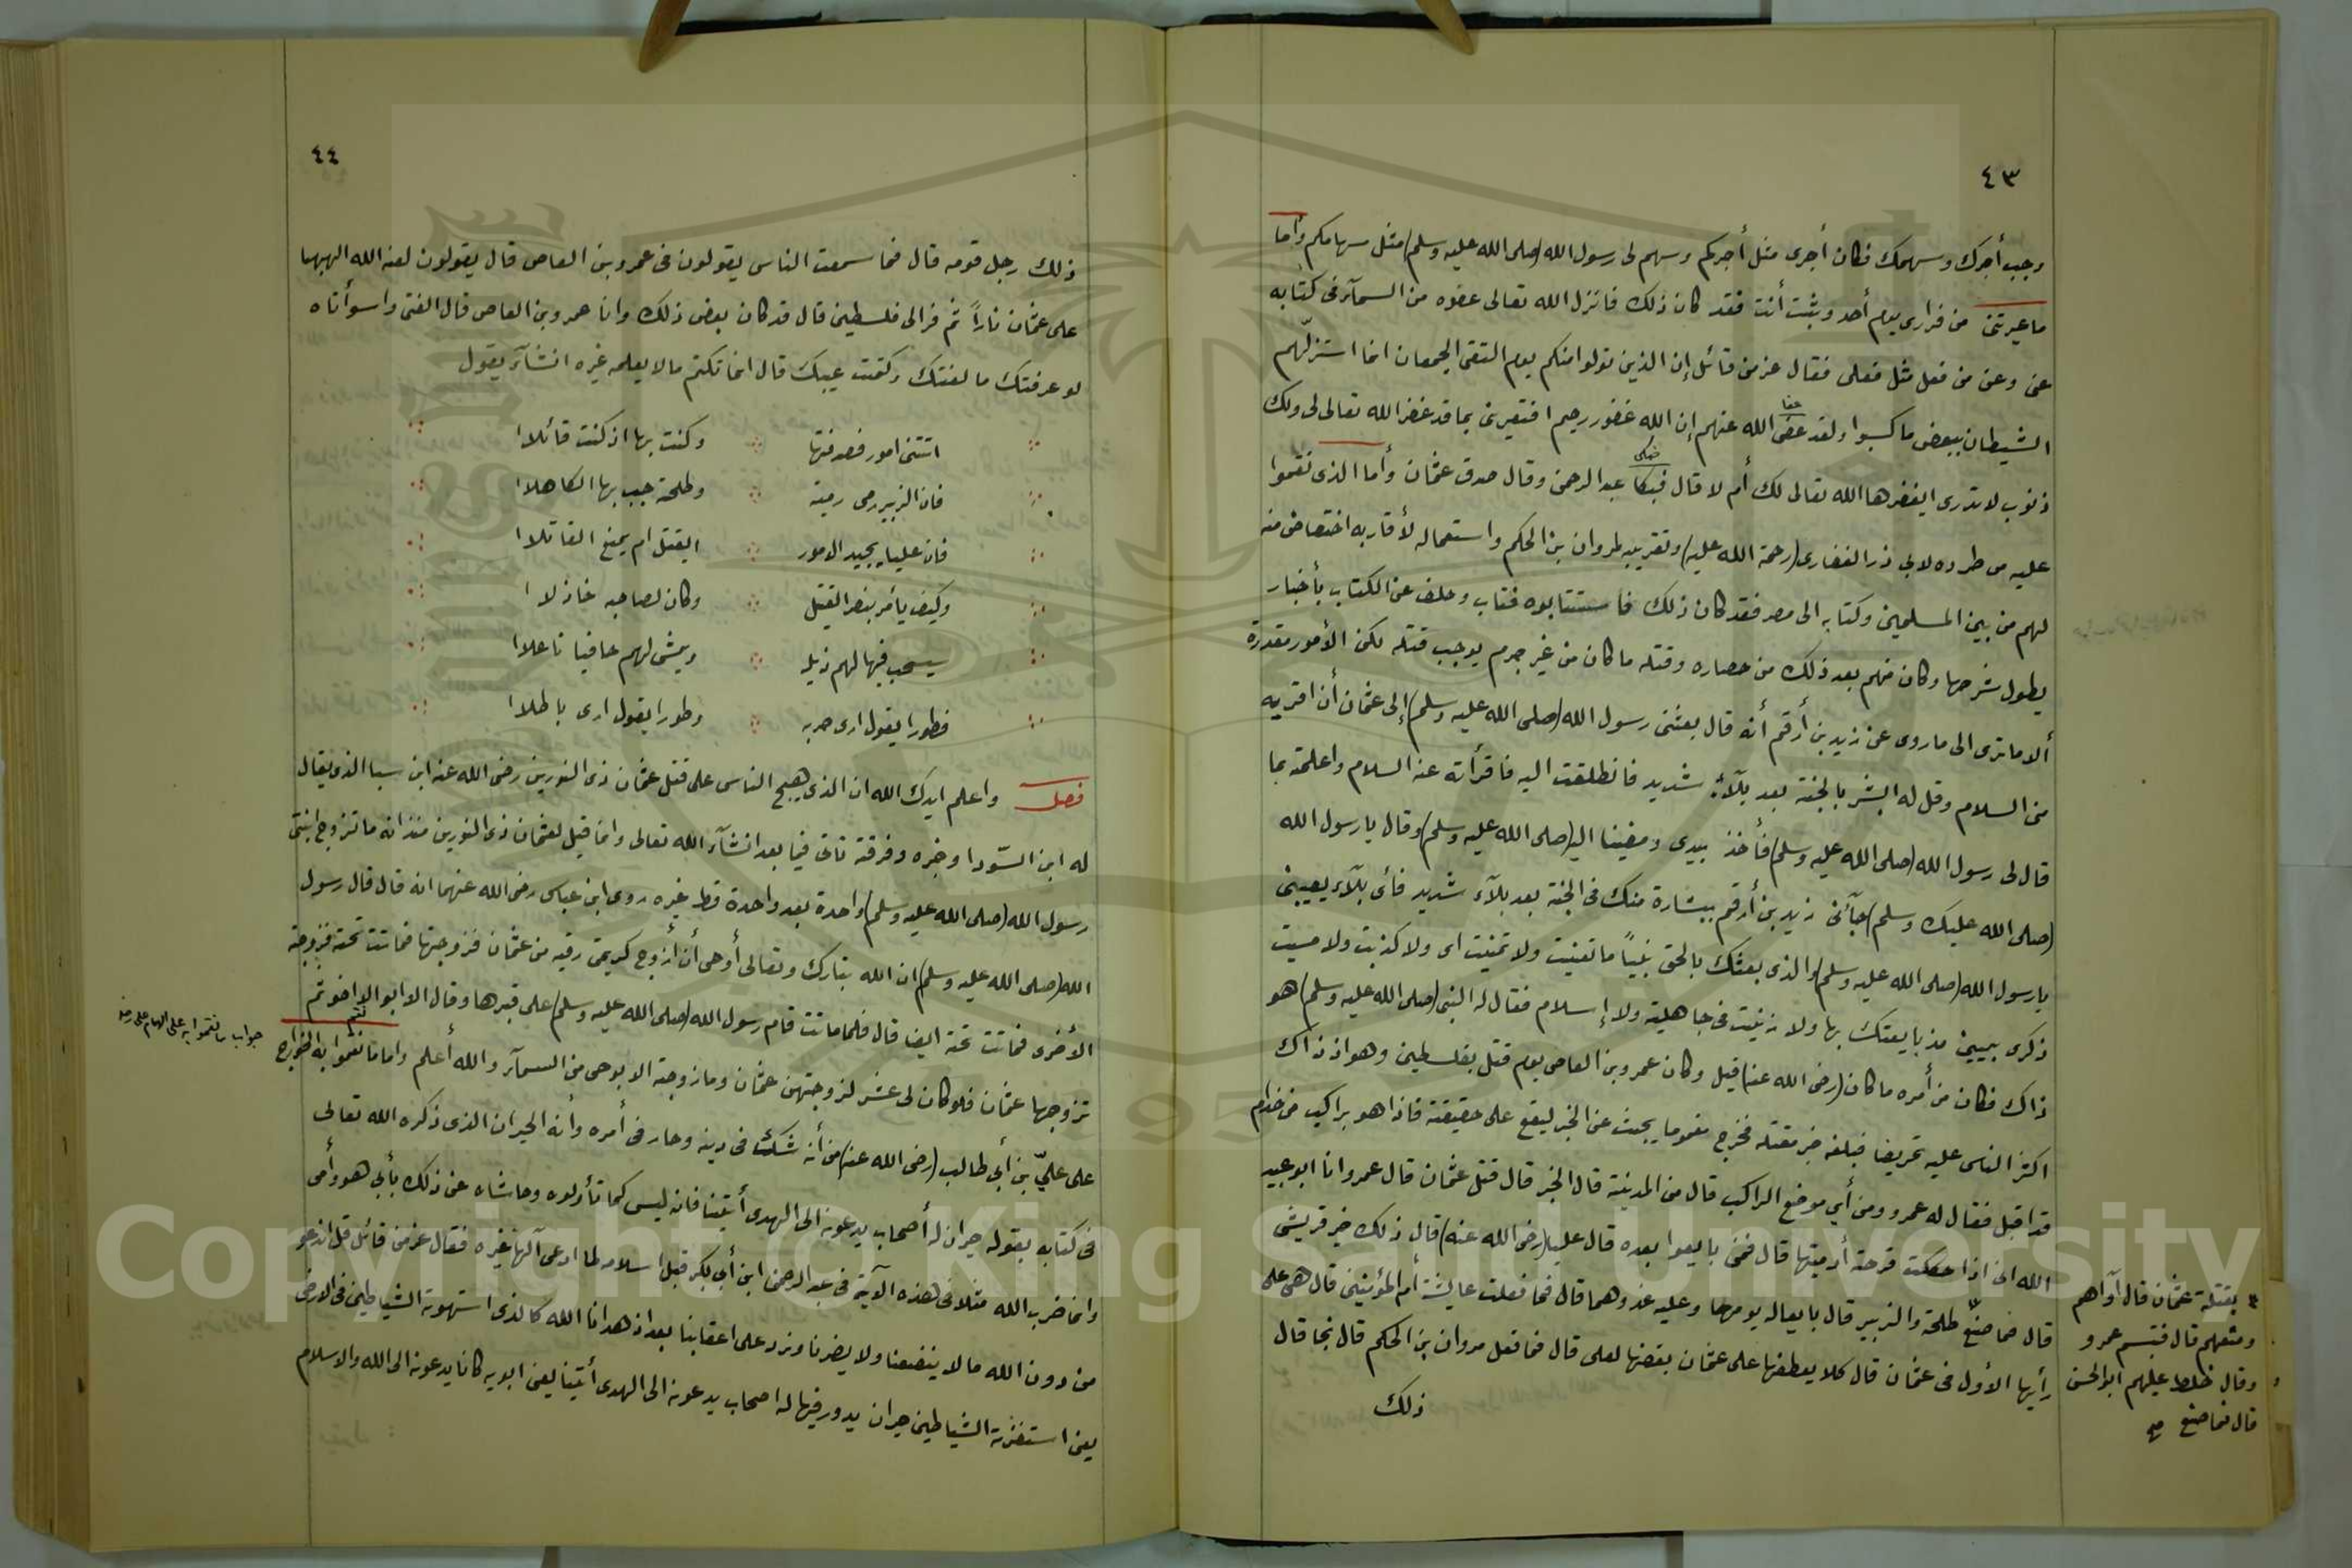 ٤٣
وجب أجرك وسهمك فكان أجرى مثل أجركم وسهم لى رسول الله (صلى الله عليه وسلم) مثل سهامكم وأما
ما عيرتنى من فرارى يوم أحد وثبت أنت فقد كان ذلك فانزل الله تعالى عفوه من السمآء فى كتابه
عنى وعن من فعل مثل فعلى فقال عز من قائل إن الذين تولوا منكم يوم التقى الجمعان انما استزلّهم
الشيطان ببعض ما كسبوا ولقد عفى الله عنهم إن الله غفور رحيم افتعيرنى بما قد غفر الله تعالى لى ولك
عفا
ذنوب لا تدرى ايغفرها الله تعالى لك أم لا قال فبكا عبد الرحمن وقال صدق عثمان وأما الذى نقموا
عليه من طرده لابي ذر الغفارى (رحمة الله عليه) وتقريبه لمروان بن الحكم واستعماله لأقاربه اختصاص منه
لهم من بين المسلمين وكتابه الى مصر فقد كان ذلك فاستتابوه فتاب وحلف عن الكتاب بأخبار
يطول شرحها وكان منهم بعد ذلك من حصاره وقتله ما كان من غير جرم يوجب قتله لكن الأمور مقدرة
ألا ترى الى ما روى عن زيد بن أرقم أنه قال بعثنى رسول الله (صلى الله عليه وسلم) إلى عثمان أن اقريه
منى السلام وقل له ابشر بالجنة بعد بلآء شديد فانطلقت اليه فاقرأته عنه السلام واعلمته بما
قال لى رسول الله (صلى الله عليه وسلم) فأخذ بيدى ومضينا اليه (صلى الله عليه وسلم) وقال يا رسول الله
(صلى الله عليك وسلم) جآئنى زيد بن أرقم ببشارة منك فى الجنة بعد بلآء شديد فأى بلآء يصيبنى
يا رسول الله (صلى الله عليه وسلم) والذى بعثك بالحق نبياً ما تغنيت ولا تمنيت اى ولا كذبت ولا مسيت
ذكرى بيمينى مذ بايعتك بها ولا زنيت فى جاهلية ولا إسلام فقال له النبى (صلى الله عليه وسلم) هو
ذاك فكان من أمره ما كان (رضى الله عنه) قيل وكان عمرو بن العاص يوم قتل بفلسطين وهو اذ ذاك
اكثر الناس عليه تحريضا فبلغه خبر مقتله فخرج مغموما يبحث عن الخبر ليقع على حقيقته فاذا هو براكب من خدام
قد اقبل فقال له عمرو ومن أي موضع الراكب قال من المدينة قال الخبر قال قتل عثمان قال عمرو انا ابو عبيد
الله انى اذا حككت قرحة أدميتها قال فمن بايعوا بعده قال عليا (رضى الله عنه) قال ذلك خير قريش
قال فما صنع طلحة والزبير قال بايعاله يومها وعليه غدوهما قال فما فعلت عايشة أم المؤمنين قال هى على
رأيها الأول فى عثمان قال كلا يعطفها على عثمان بغضها لعلى قال فما فعل مروان بن الحكم قال نجا قال
ذلك
بقتلة عثمان قال آواهم
ومنعهم قال فتبسم عمرو
وقال خلط عليهم ابو الحسن
قال فما صنع
٤٤
ذلك رجل قومه قال فما سمعت الناس يقولون فى عمرو بن العاص قال يقولون لعنه الله الهبها
على عثمان ناراً ثم فر الى فلسطين قال قد كان بعض ذلك وانا عمرو بن العاص قال الفتى واسوأتاه
لو عرفتك ما لعنتك وكتمت عيبك قال انما تكتم ما لا يعلمه غيره انشآء يقول
اتتنى امور فصدفتها وكنت بها اذ كنت قائلا
فان الزبير رمى رمية وطلحة جبب بها الكاهلا
فان عليا يجيد الامور ايقتل ام يمنع القاتلا
وكيف يأمر بنصر القتيل وكان لصاحبه خاذلا
سيسحب فيها لهم ذيله ويمشى لهم حافيا ناعلا
فطورا يقول ارى حربه وطورا يقول ارى باطلا
فصل واعلم ايدك الله ان الذى هيج الناس على قتل عثمان ذى النورين رضى الله عنه ابن سبا الذى يقال
له ابن السّودا وخبره وفرقته تاتى فيما بعد انشآء الله تعالى وانما قيل لعثمان ذى النورين منذ انه ما تزوج ابنتى
رسول الله (صلى الله عليه وسلم) واحدة بعد واحدة قط غيره روى ابن عباس رضى الله عنهما انه قال قال رسول
الله (صلى الله عليه وسلم) ان الله تبارك وتعالى أوحى أن أزوج كريمتى رقيه من عثمان فزوجتها فماتت تحته فزوجته
الأخرى فماتت تحته ايضا قال فلما ماتت قام رسول الله (صلى الله عليه وسلم) على قبرها وقال الا ابو الا اخو ثم
تزوجها عثمان فلو كان لى عشر لزوجتهن عثمان وما زوجته الا بوحى من السمآء والله أعلم واما ما نقموا به الخوارج
على عليّ بن أبي طالب (رضى الله عنه) من أنه شكك فى دينه وحار فى أمره وأنه الحيران الذى ذكره الله تعالى
فى كتابه بقوله حيران له أصحاب يدعونه الى الهدى أئتنا فانه ليس كما تأولوه وحاشاه عن ذلك بأبي هو وأمى
وانما ضرب الله مثلا فى هذه الآية فى عبد الرحمن ابن أبي بكر قبل اسلامه لما ادعى آلها غيره فقال عز من قائل قل اندعو
من دون الله ما لا ينفعنا ولا يضرنا ونرد على اعقابنا بعد اذ هدانا الله كالذى استهوته الشياطين فى الارض
يعنى استفزته الشياطين حيران يدور فيها له اصحاب يدعونه الى الهدى أئتنا يعنى ابويه كانا يدعونه الى الله والاسلام
جواب ما نقموا به على الامام على
Copyright © King Saud University